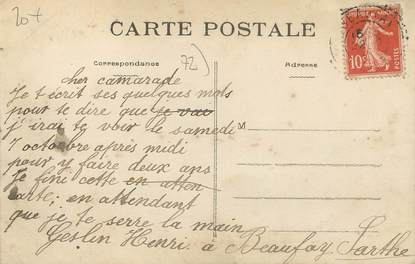 20+
CARTE POSTALE
Correspondance
72)
Adresse
10c
cher camarade
Je t ecrit ses quelques mots
pour te dire que je vai
j irai te voir le samedi
7 octobre après midi
pour y faire deux ans
Je fini cette en atten
carte; en attendant
que je te serre la main
Geslin Henri à Beaufay Sarthe
M